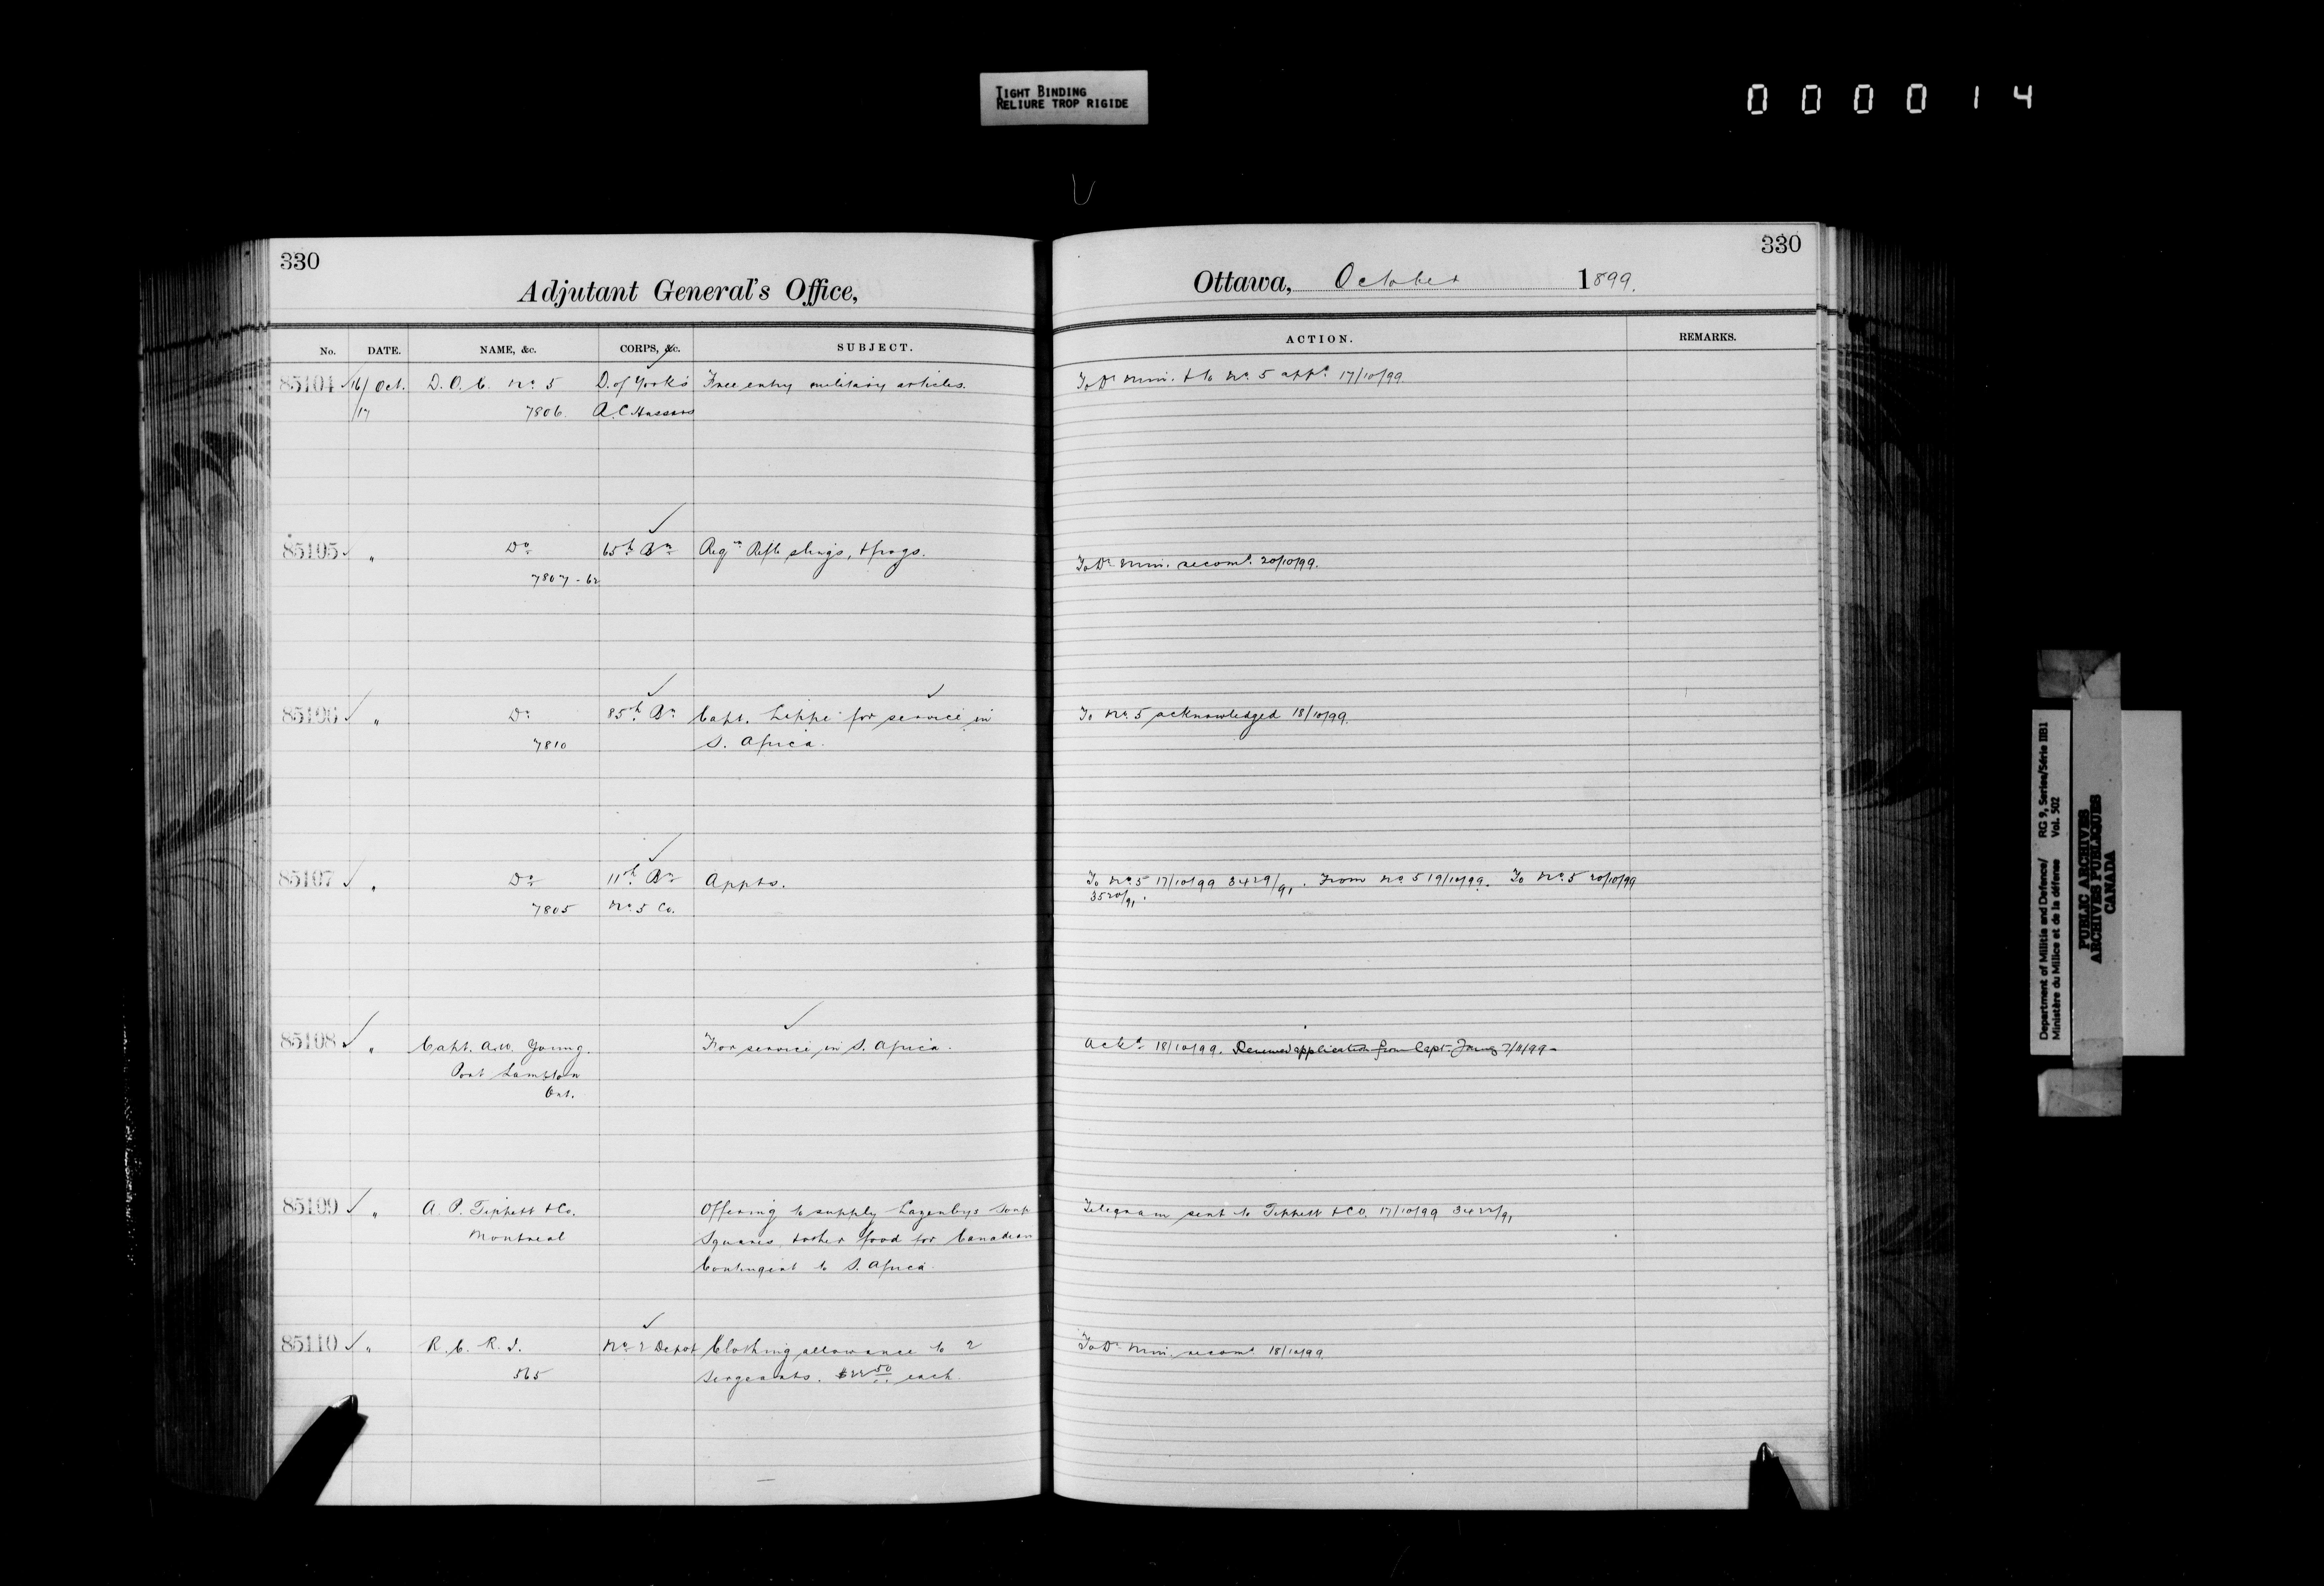 TIGHT BINDING
RELIURE TROP RIGIDE
000014
330
Adjutant General's Office,
No. DATE. NAME, &c. CORPS, &c. SUBJECT.
85104 16/ Oct. D. O. C. No. 5 D. of York's Free entry military articles.
/17 7806. R. C. Hussars
85105 " Do 65th Bn Reqn Rifle slings, & frogs.
7807 - 62
85106 " Do 85th Bn Capt. Lippé for service in
7810 S. Africa.
85107 " Do 11th Bn Appts.
7805 No. 5 Co.
85108 " Capt. A.W. Young. For service in S. Africa.
Port Lambton
Ont.
85109 " A. P. Tippett & Co. Offering to supply Lazenbys Soup
Montreal Squares, & other food for Canadian
Contingent to S. Africa.
85110 " R. C. R. I. No 2 Depot Clothing allowance to 2
565 Sergeants. $22 50 each.
330
Ottawa, October 1899.
ACTION. REMARKS.
To Dr Min. & to No. 5 appd 17/10/99.
To Dr Min. recomd. 20/10/99.
To No. 5 acknowledged 18/10/99.
To No. 5 17/10/99 3429/91. From No. 5 19/10/99. To No. 5 20/10/99
3520/91.
Ackd 18/10/99. Renewed application from Capt. Young 7/11/99
Telegram sent to Tippett & Co. 17/10/99 3422/91
To Dr Min. recomd 18/10/99.
Department of Militia and Defence/ RG 9, Series/Série IIB1
Ministère du Milice et de la défense Vol. 502
PUBLIC ARCHIVES
ARCHIVES PUBLIQUES
CANADA